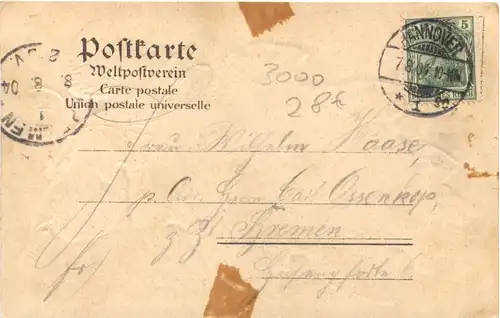 Postkarte
Weltpostverein
Carte postale
Union postale universelle
5
HANNOVER
7.8.04
3000
28€
Frau Wilhelm Haase,
p. Adr. Herrn Carl Ossenkop,
z. Zt. Bremen
Frh
04